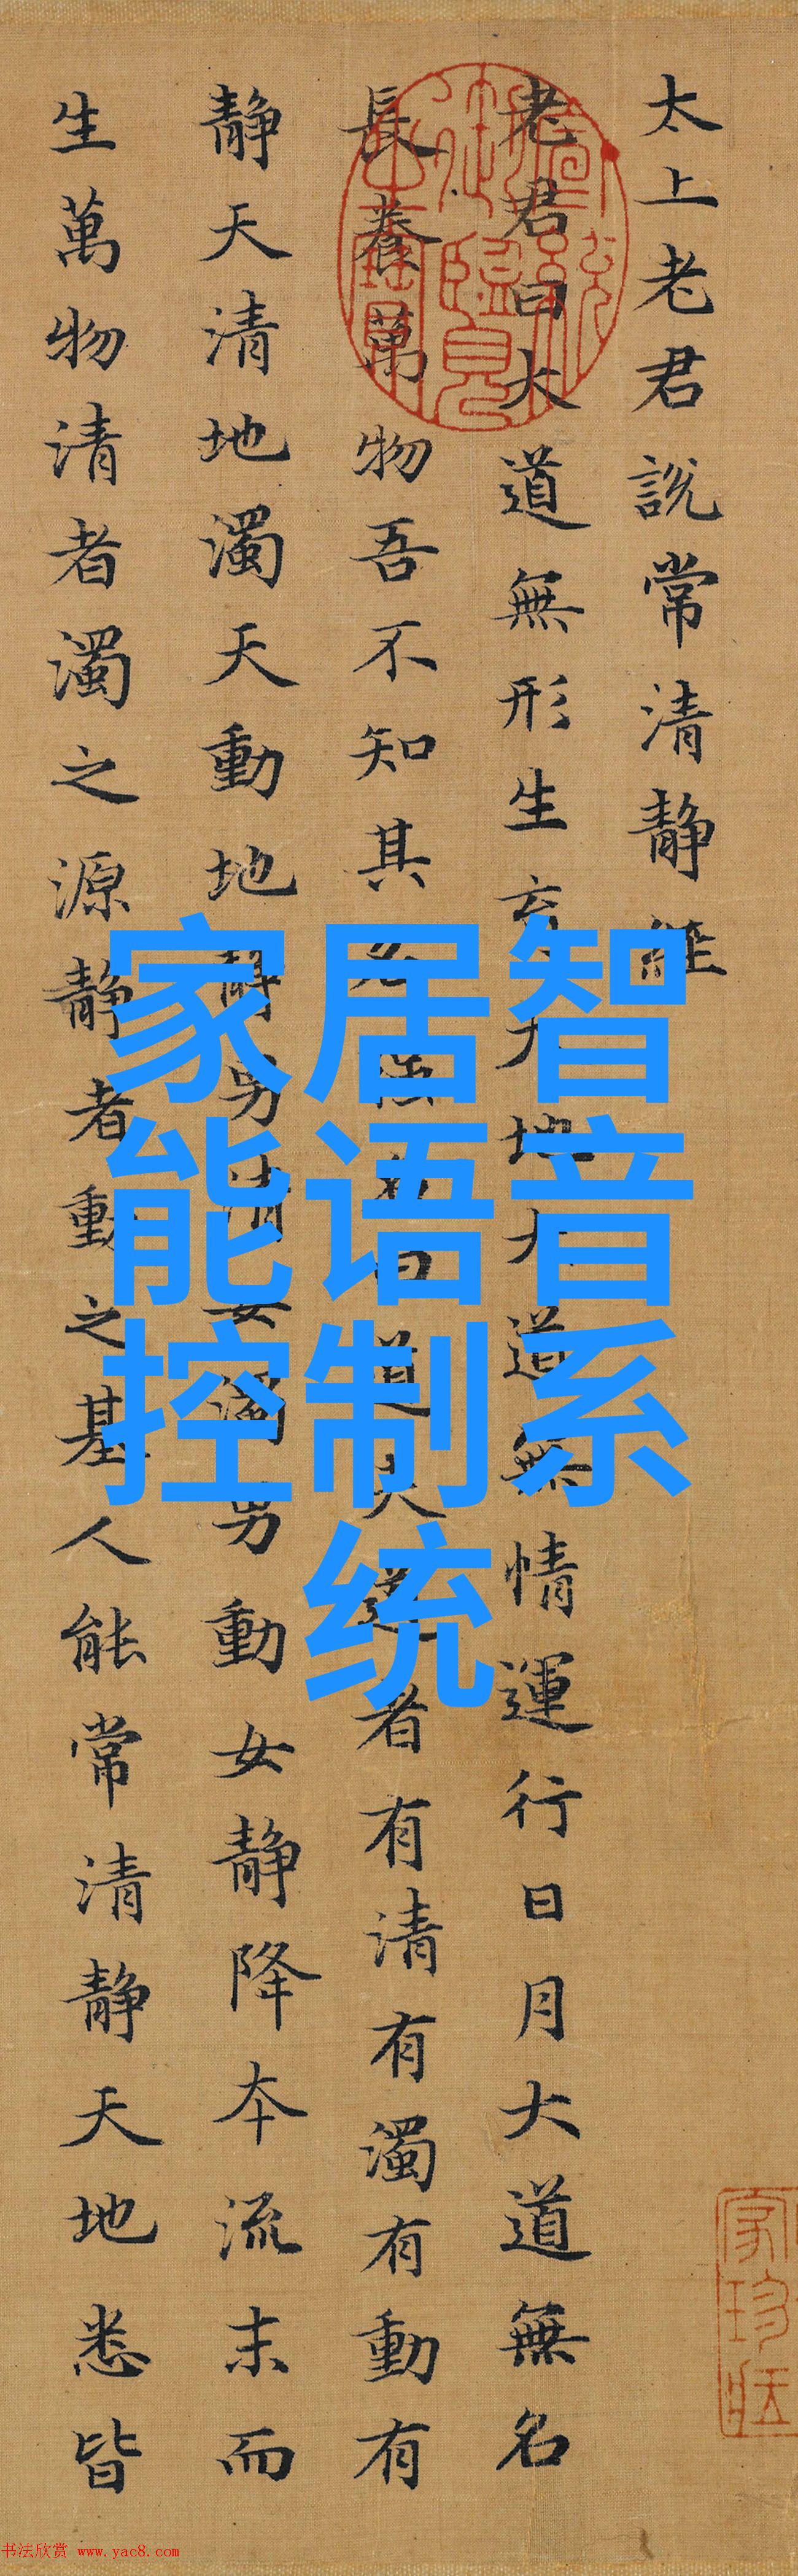 太上老君說常清静經
老君曰大道無形生育天地大道無情運行日月大道無名
長養萬物吾不知其名強名曰道夫道者有清有濁有動有
静天清地濁天動地静男清女濁男動女静降本流末而
生萬物清者濁之源静者動之基人能常清静天地悉皆
宣統御覽之寶
家居智
能语音
控制系
统
书法欣赏 www.yac8.com